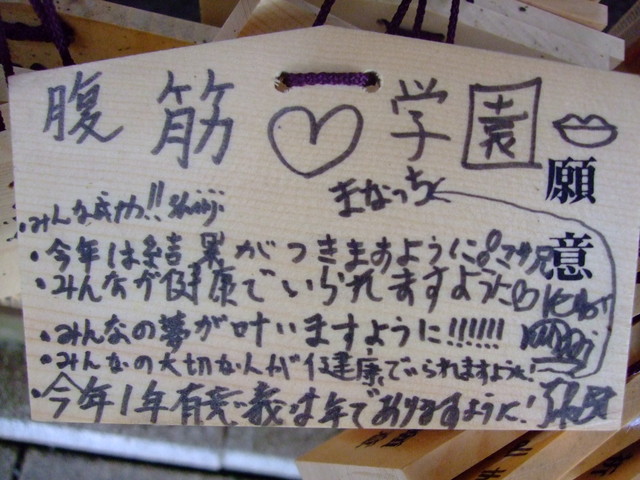 腹筋♡学園
願意
まなっち
・みんな成功!!
・今年は結果がつきますように。
・みんなが健康でいられますように♡
・みんなの夢が叶いますように!!!!!!
・みんなの大切な人が健康でいられますように!
・今年1年有意義な年であけますように!